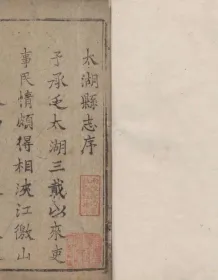 太湖縣志序
予承乏太湖三載以來吏
事民情頗得相浹江徼山